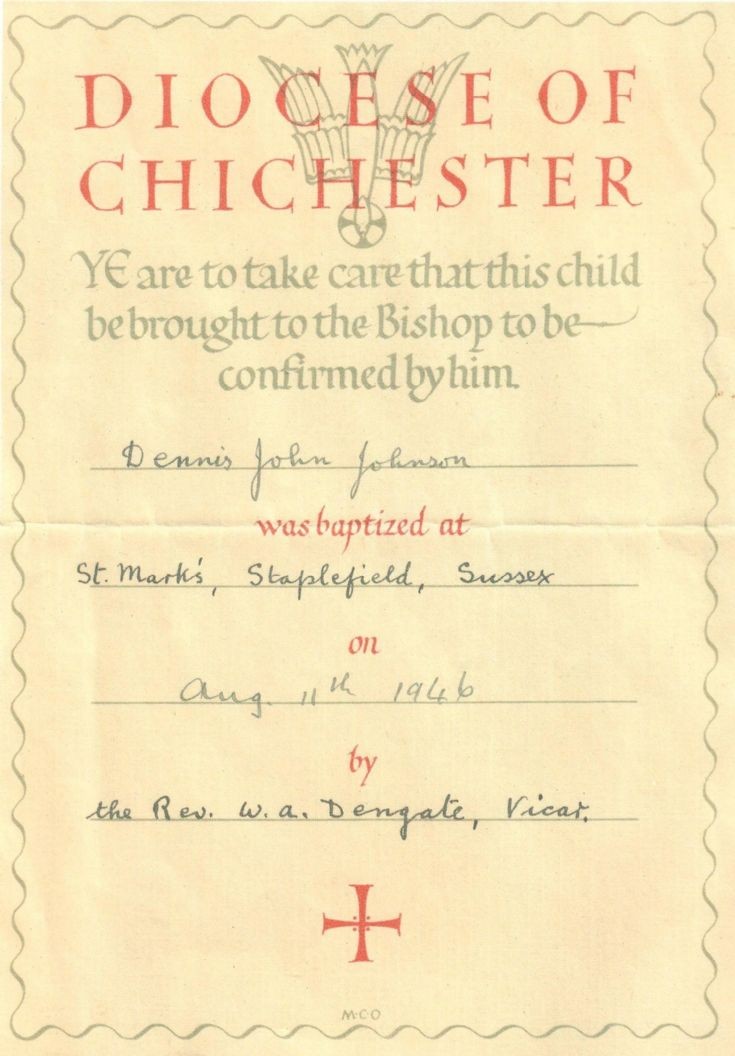 DIOCESE OF
CHICHESTER
YE are to take care that this child
be brought to the Bishop to be
confirmed by him.
Dennis John Johnson
was baptized at
St. Mark's, Staplefield, Sussex
on
Aug. 11th 1946
by
the Rev. W. A. Dengate, Vicar.
M·C·O